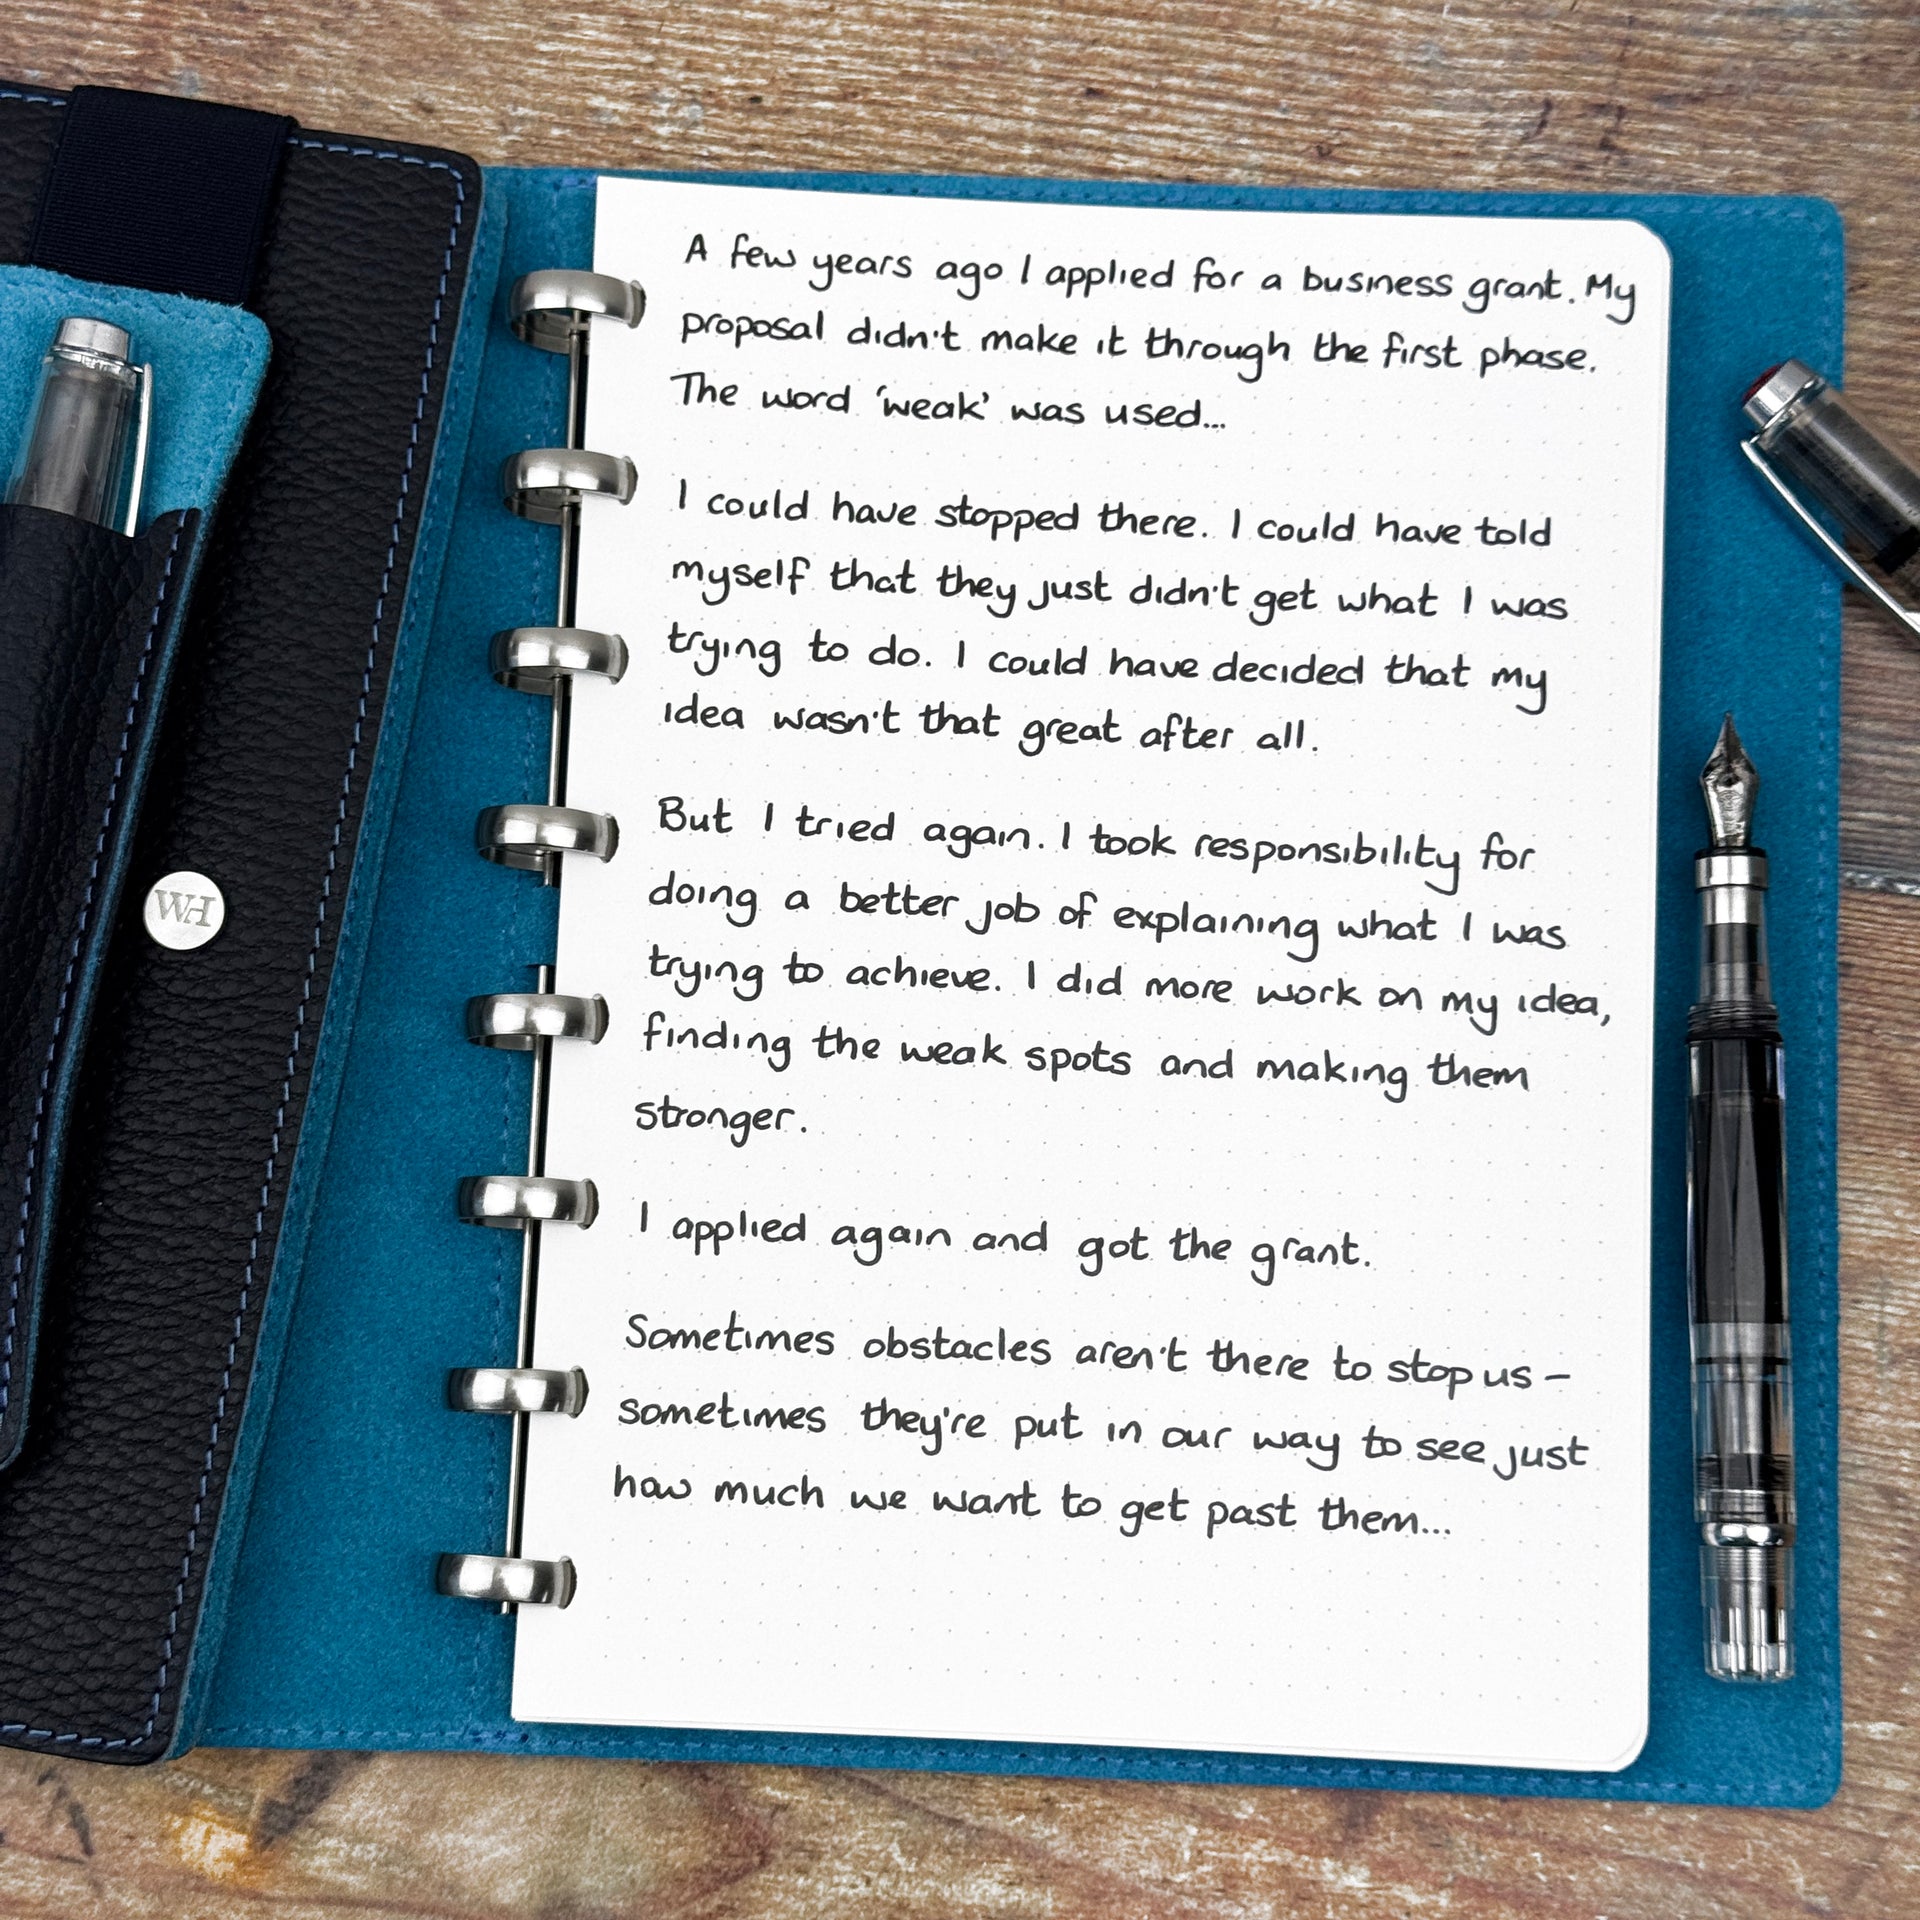 A few years ago I applied for a business grant. My
proposal didn't make it through the first phase.
The word 'weak' was used...
I could have stopped there. I could have told
myself that they just didn't get what I was
trying to do. I could have decided that my
idea wasn't that great after all.
But I tried again. I took responsibility for
doing a better job of explaining what I was
trying to achieve. I did more work on my idea,
finding the weak spots and making them
stronger.
I applied again and got the grant.
Sometimes obstacles aren't there to stop us –
sometimes they're put in our way to see just
how much we want to get past them...
WH